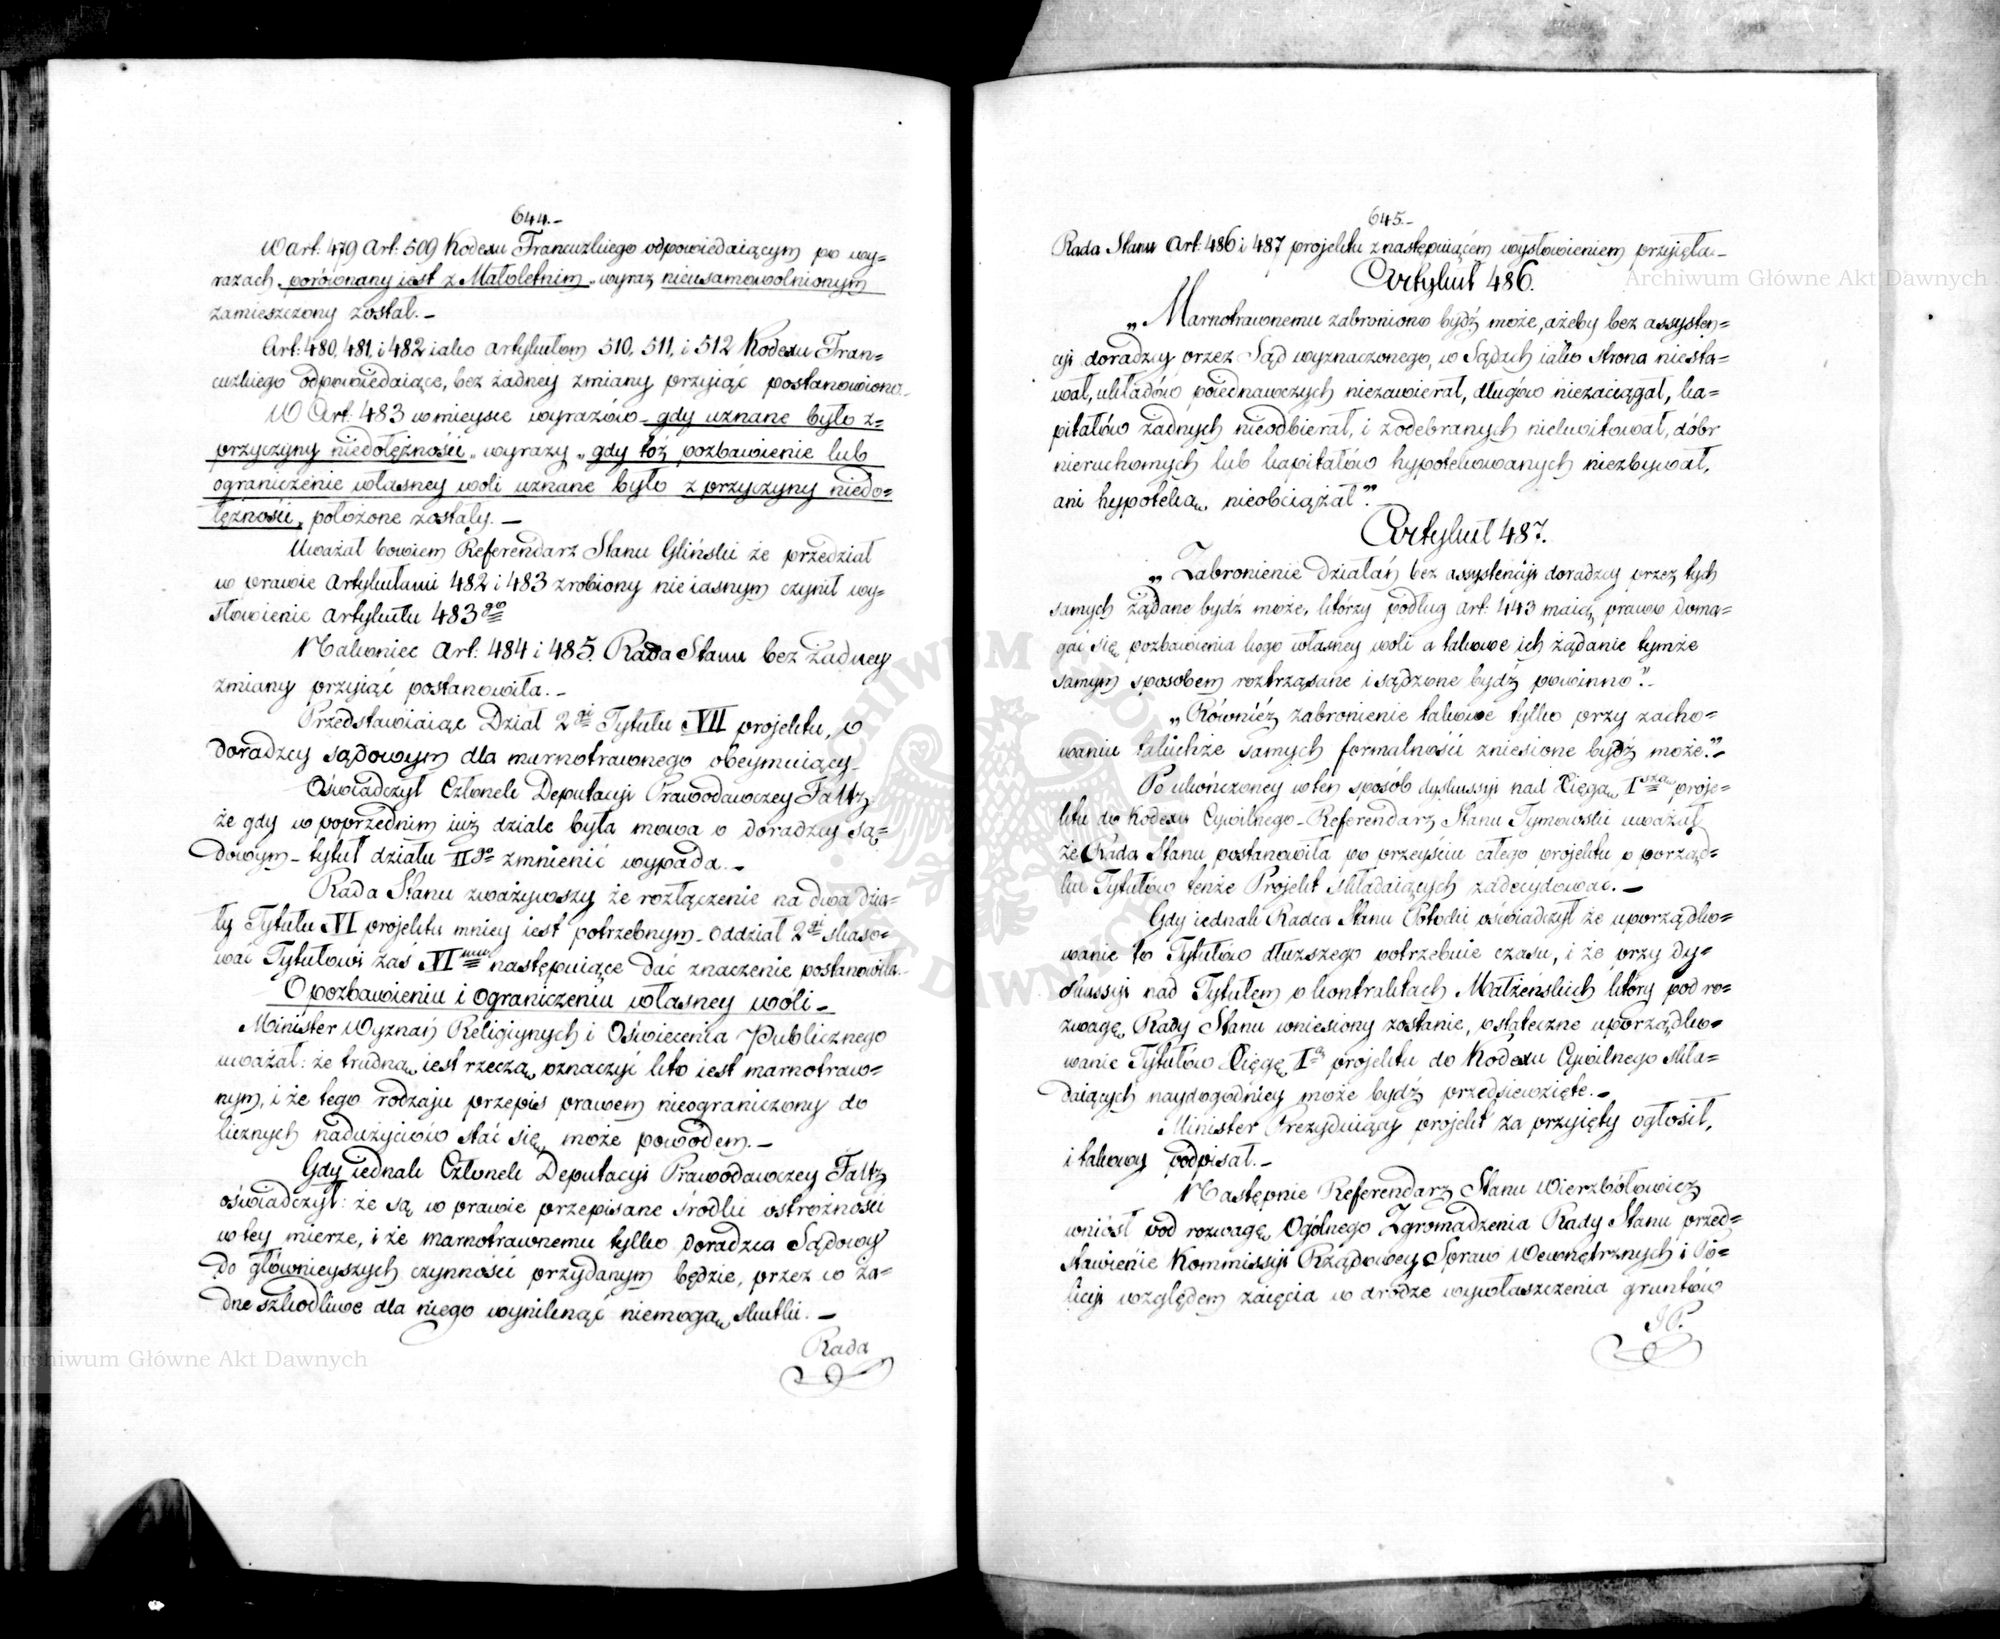 644.-
W art. 479 Art: 509 Kodexu Francuzkiego odpowiedaiącym po wy=
razach „porównany iest z Małoletnim„ wyraz nieusamowolnionym
zamieszczony został.-
Art: 480, 481, i 482 iako artykułom 510, 511, i 512 Kodexu Fran=
cuzkiego odpowiedaiące, bez żadney zmiany przyiąć postanowiono.-
W Art: 483 w mieysce wyrazów „gdy uznane było z=
przyczyny niedołężności„ wyrazy „gdy toż pozbawienie lub
ograniczenie własney woli uznane było z przyczyny niedo=
łężności„ położone zostały.-
Uważał bowiem Referendarz Stanu Gliński że przedział
w prawie artykułami 482 i 483 zrobiony nie iasnym czynił wy=
słowienie artykułu 483go
Nakoniec Art: 484 i 485. Rada Stanu bez żadney
zmiany przyiąć postanowiła.-
Przedstawiaiąc Dział 2gi Tytułu VII projektu, o
doradzcy sądowym dla marnotrawnego obeymuiący-
Oświadczył Członek Deputacyi Prawodawczey Faltz
że gdy w poprzednim iuż dziale była mowa o doradzcy są=
dowym- tytuł działu IIgo zmienić wypada.-
Rada Stanu zważywszy że rozłączenie na dwa dzia=
ły Tytułu VI projektu mniey iest potrzebnym- Oddział 2gi skaso=
wać Tytułowi zaś VImu następuiące dać znaczenie postanowiła.-
O pozbawieniu i ograniczeniu własney woli-
Minister Wyznań Religiynych i Oświecenia Publicznego
uważał: że trudną iest rzeczą oznaczyć kto iest marnotraw=
nym, i że tego rodzaju przepis prawem nieograniczony do
licznych nadużyciów stać się może powodem.-
Gdy iednak Członek Deputacyi Prawodawczey Faltz
oświadczył: że są w prawie przepisane środki ostrożności
w tey mierze, i że marnotrawnemu tylko Doradzca Sądowy
do główneyszych czynności przydanym będzie, przez co ża=
dne szkodliwe dla niego wyniknąć niemogą skutki.-
Rada
645.-
Rada Stanu Art: 486 i 487 projektu z następuiącém wysłowieniem przyięła-
Artykuł 486.
„Marnotrawnemu zabroniono bydź może, ażeby bez assysten=
cyi doradzcy przez Sąd wyznaczonego, w Sądzch iako strona niesta=
wał, układów poiednawczych niezawierał, długów niezaciągał, ka=
pitałów żadnych nieodbierał, i z odebranych niekwitował, dóbr
nieruchomych lub kapitałów hypotekowanych niezbywał,
ani hypoteką nieobciążał”.
Artykuł 487.
„Zabronienie działań bez assystencyi doradzcy przez tych
samych żądane bydź może, którzy podług Art: 443 maią prawo doma=
gać się pozbawienia kogo własney woli a takowe ich żądanie tymże
samym sposobem roztrząsane i sądzone bydź powinno”.-
„Równiéż zabronienie takowe tylko przy zacho=
waniu takichże samych formalności zniesione bydź może.”-
Po ukończoney w ten sposób dyskussyi nad Xięgą Iszą proje=
ktu do Kodexu Cywilnego- Referendarz Stanu Tymowski uważał
że Rada Stanu postanowiła po przeyściu całego projektu o porząd=
ku Tytułów tenże Projekt składaiących zadecydować.-
Gdy iednak Radca Stanu Potocki oświadczył że uporządko=
wanie to Tytułów dłuższego potrzebuie czasu, i że przy dy=
skussyi nad Tytułem o kontraktach Małżeńskich który pod ro=
zwagę Rady Stanu wniesiony zostanie, ostateczne uporządko=
wanie Tytułów Xięgę Ią projektu do Kodexu Cywilnego skła=
daiących naydogodniey może bydź przedsiewzięte.-
Minister Prezyduiący projekt za przyięty ogłosił,
i takowy podpisał.-
Następnie Referendarz Stanu Wierzbołowicz
wniósł pod rozwagę Ogólnego Zgromadzenia Rady Stanu przed=
stawienie Kommissyi Rządowey Spraw Wewnętrznych i Po=
licyi względem zaięcia w drodze wywłaszczenia gruntów
Archiwum Główne Akt Dawnych
Archiwum Główne Akt Dawnych
ARCHIWUM GŁÓWNE AKT DAWNYCH